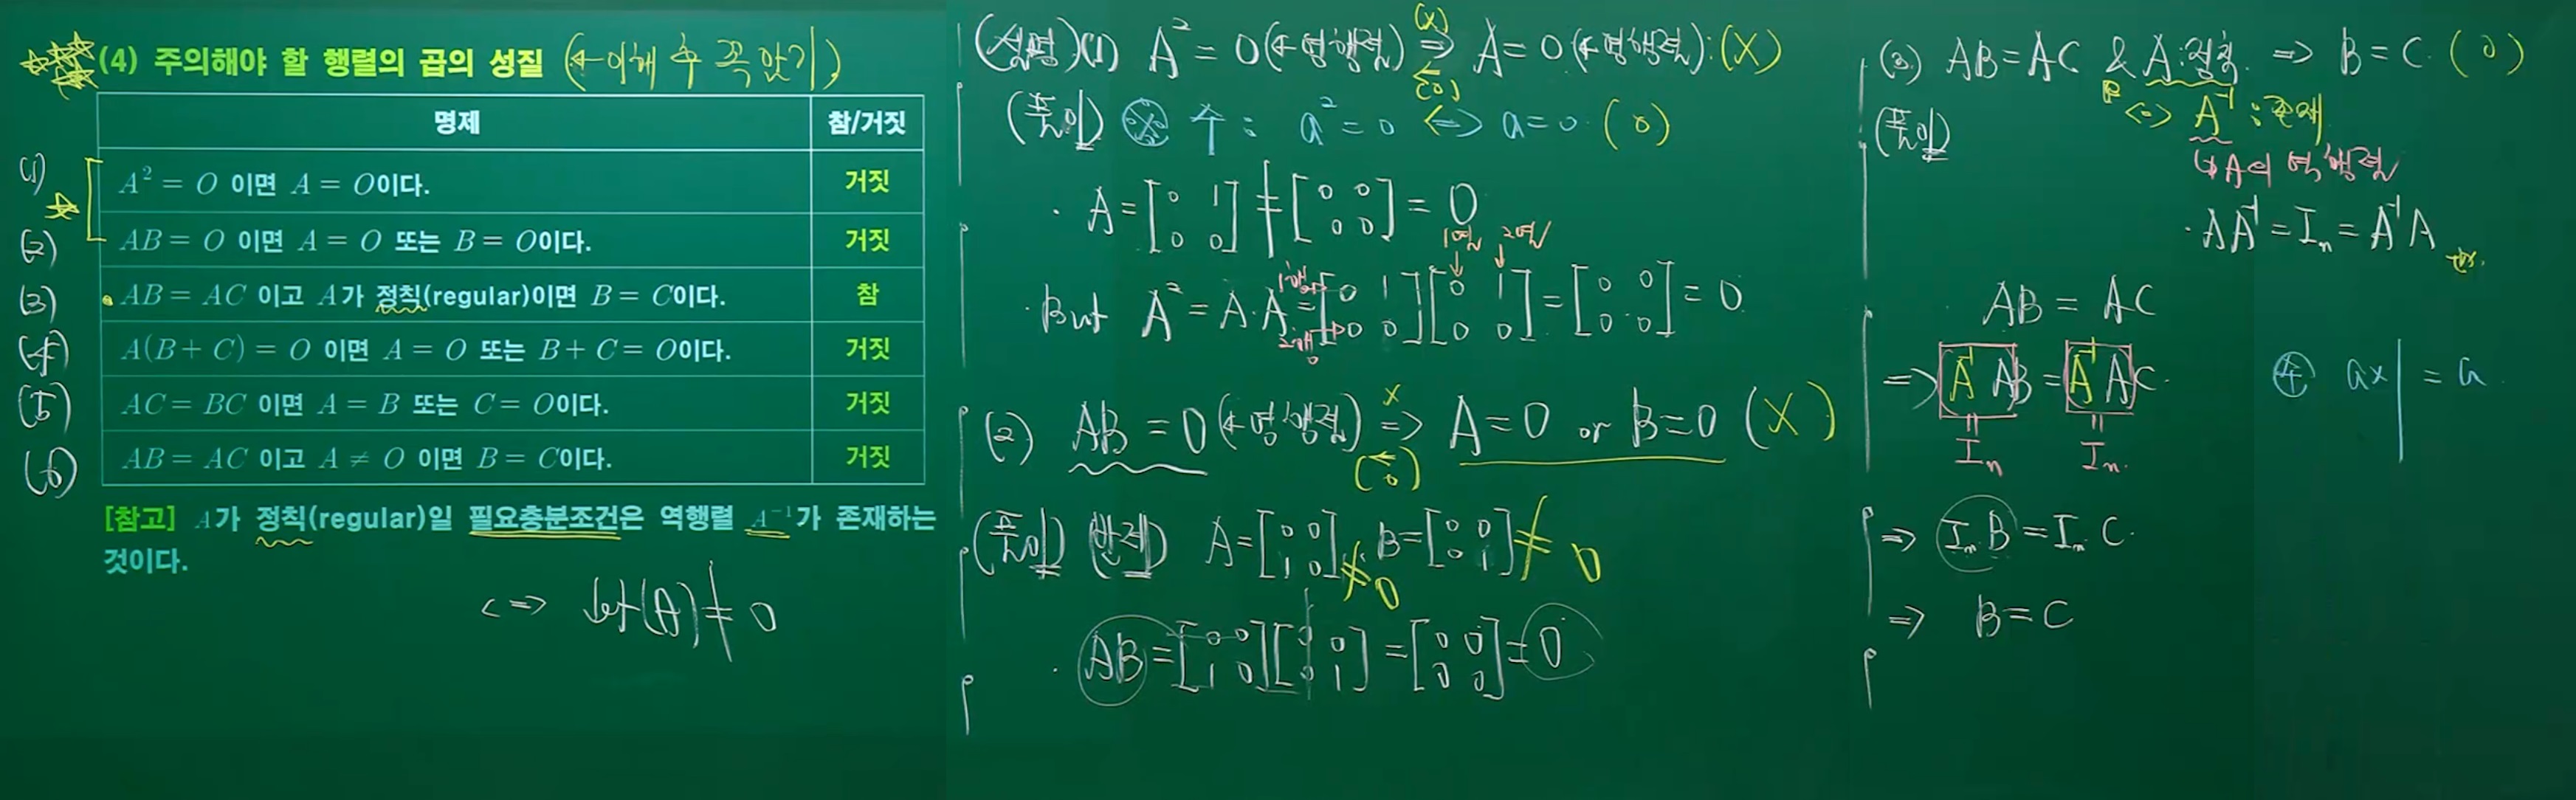 (4) 주의해야 할 행렬의 곱의 성질 (← 이해 후 꼭 암기!)
명제 참/거짓
(1) A² = O 이면 A = O이다. 거짓
(2) AB = O 이면 A = O 또는 B = O이다. 거짓
(3) AB = AC 이고 A가 정칙(regular)이면 B = C이다. 참
(4) A(B + C) = O 이면 A = O 또는 B + C = O이다. 거짓
(5) AC = BC 이면 A = B 또는 C = O이다. 거짓
(6) AB = AC 이고 A ≠ O 이면 B = C이다. 거짓
[참고] A가 정칙(regular)일 필요충분조건은 역행렬 A⁻¹가 존재하는
것이다.
<=> det(A) ≠ 0
(설명) (1) A² = O (← 영행렬) => A = O (← 영행렬) : (X)
(X)
(O)
(풀이) ※ 수 : a² = 0 <=> a = 0 (O)
· A = [0 1; 0 0] ≠ [0 0; 0 0] = O
1열 2열
1행
2행
· But A² = A·A = [0 1; 0 0][0 1; 0 0] = [0 0; 0 0] = O
(2) AB = O (← 영행렬) => A = O or B = O (X)
X
(O)
(풀이) (반례) A = [0 0; 1 0] ≠ O, B = [0 0; 0 1] ≠ O
· AB = [0 0; 1 0][0 0; 0 1] = [0 0; 0 0] = O
(3) AB = AC & A : 정칙 => B = C (O)
(풀이) <=> A⁻¹ : 존재
↳ A의 역행렬
· AA⁻¹ = Iₙ = A⁻¹A
AB = AC
=> A⁻¹AB = A⁻¹AC
Iₙ Iₙ
=> IₙB = IₙC
=> B = C
수 ax1 = a